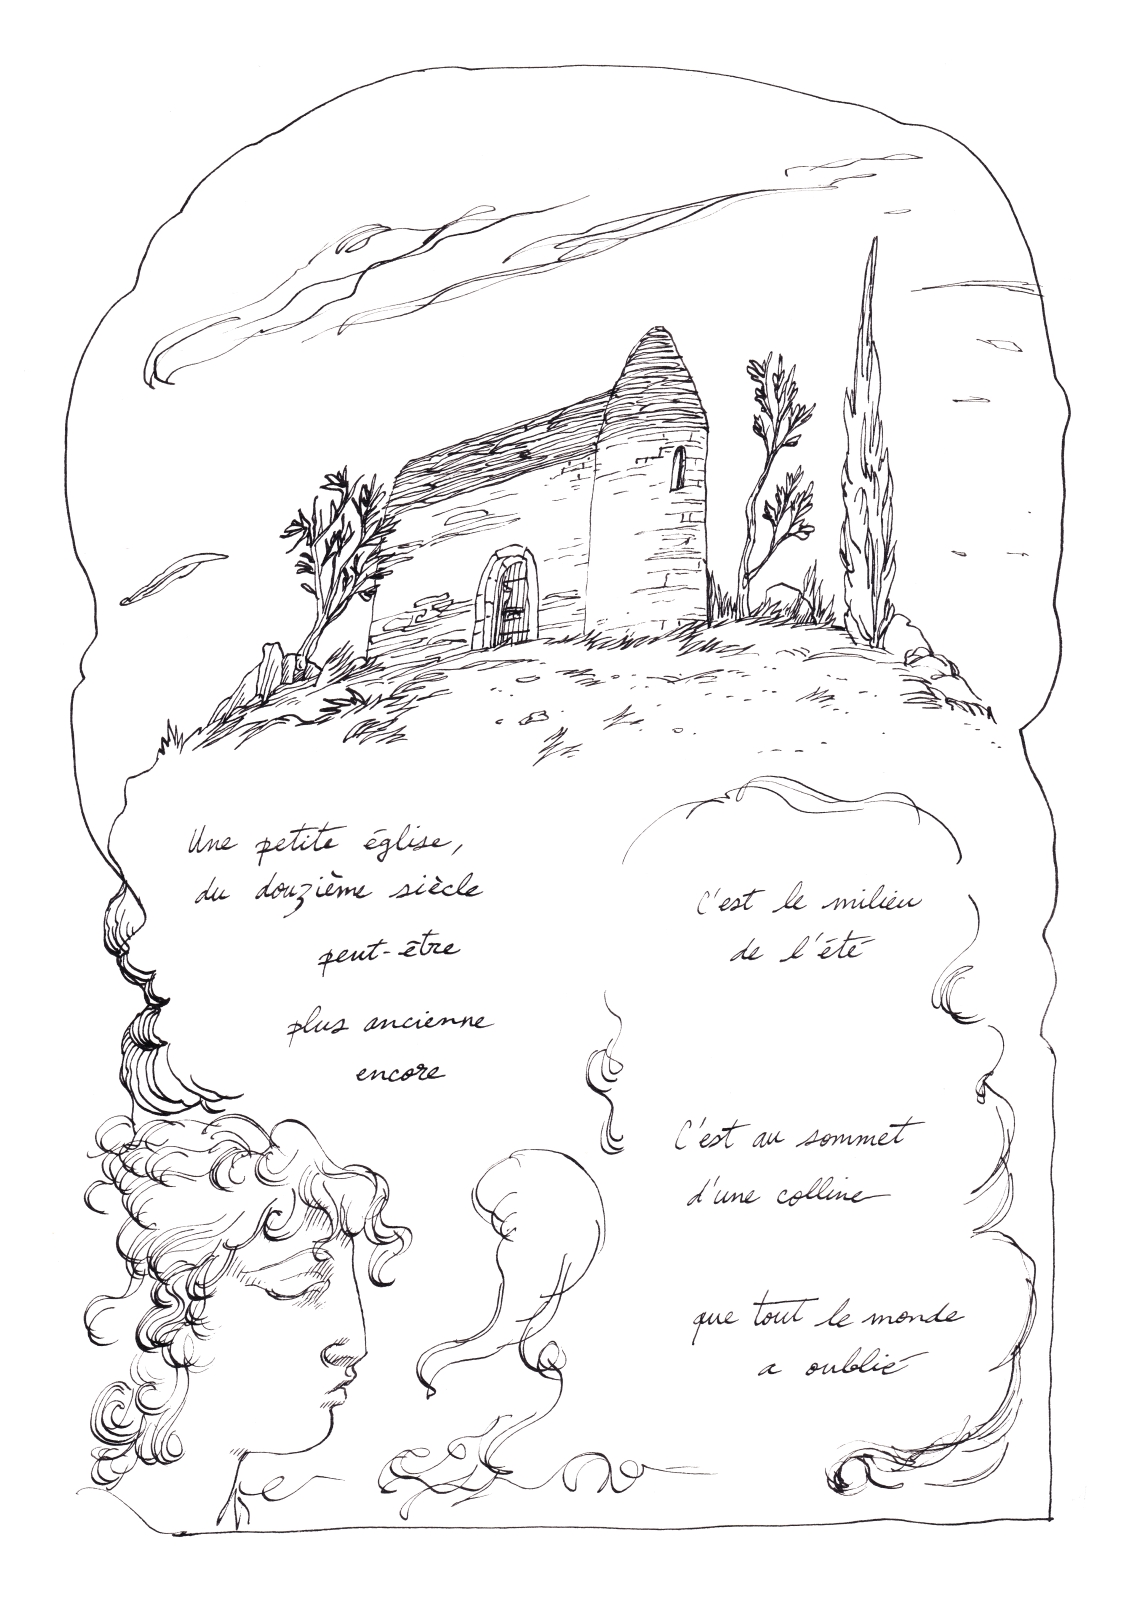 Une petite église,
du douzième siècle
peut-être
plus ancienne
encore
C'est le milieu
de l'été
C'est au sommet
d'une colline
que tout le monde
a oublié